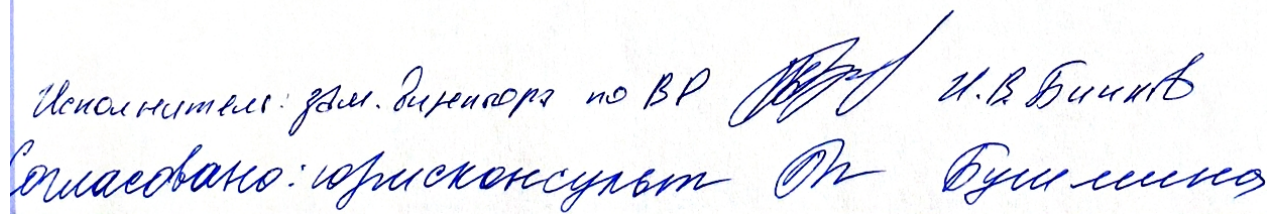 Исполнитель: зам. директора по ВР И.В.
Согласовано: юрисконсульт Бушмина